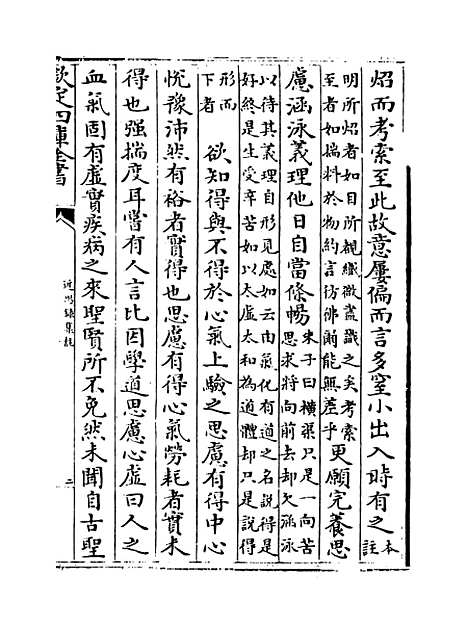 炤而考索至此故意屢偏而言多窒小出入時有之本註
明所炤者如目所覩纖微盡識之矣考索
至者如揣料於物約言彷彿爾能無差乎
更願完養思
慮涵泳義理他日自當條暢
朱子曰橫渠只是一向苦
思求將向前去却欠涵泳
以待其義理自形見處如云由氣化有道之名說得是
好終是生受辛苦如以太虛太和為道體却只是說得
形而
下者
欲知得與不得於心氣上驗之思慮有得中心
悅豫沛然有裕者實得也思慮有得心氣勞耗者實未
得也强揣度耳嘗有人言比因學道思慮心虛曰人之
血氣固有虛實疾病之來聖賢所不免然未聞自古聖
欽定四庫全書
近思録集註
二